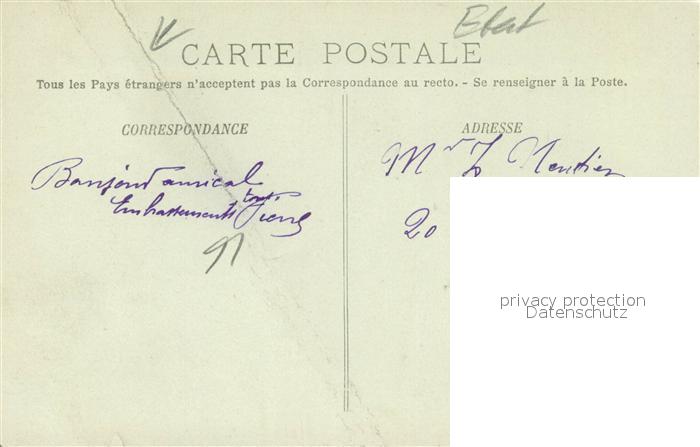 Etat
CARTE POSTALE
Tous les Pays étrangers n'acceptent pas la Correspondance au recto. - Se renseigner à la Poste.
CORRESPONDANCE
ADRESSE
Bonjour amical
Embrassements
Mr
20
91
privacy protection
Datenschutz